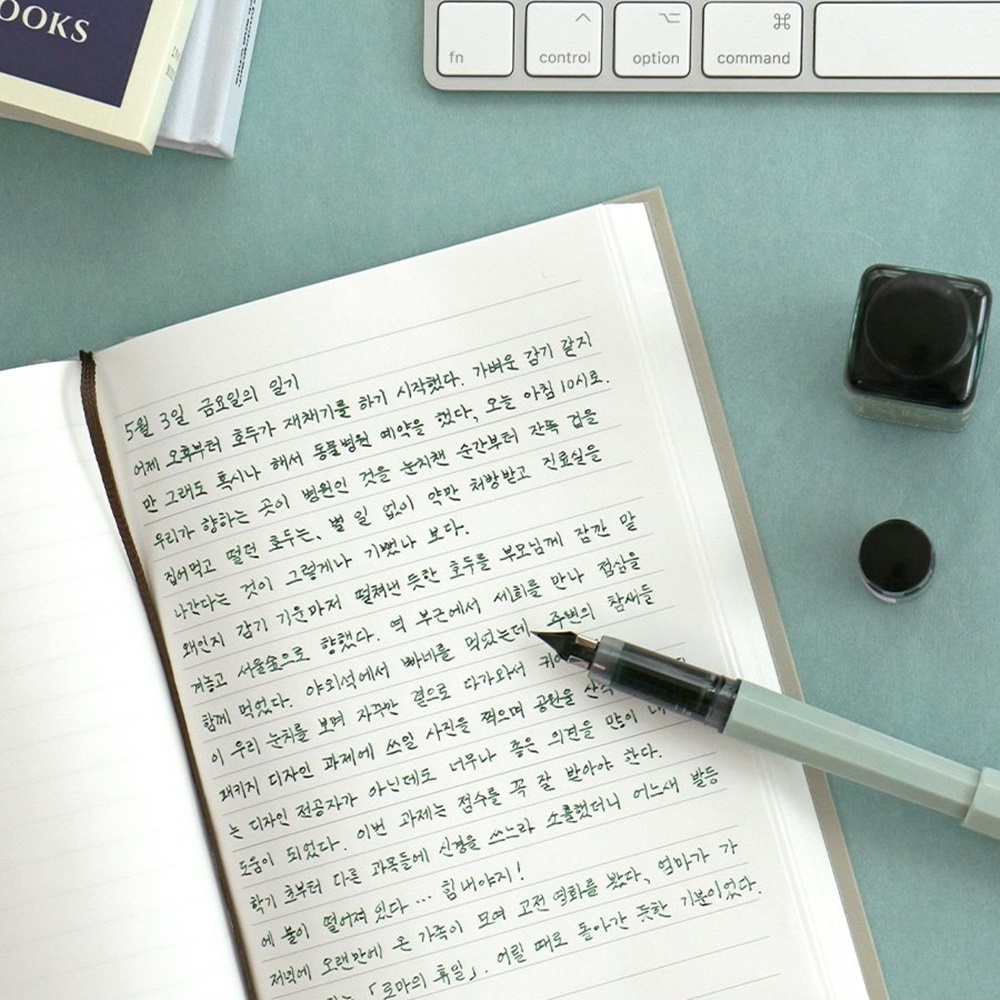 OOKS
fn
control
option
command
5월 3일 금요일의 일기
어제 오후부터 호두가 재채기를 하기 시작했다. 가벼운 감기 같지
만 그래도 혹시나 해서 동물병원 예약을 했다, 오늘 아침 10시로.
우리가 향하는 곳이 병원인 것을 눈치챈 순간부터 잔뜩 겁을
집어먹고 떨던 호두는, 별 일 없이 약만 처방받고 진료실을
나간다는 것이 그렇게나 기뻤나 보다.
왜인지 감기 기운마저 떨쳐낸 듯한 호두를 부모님께 잠깐 맡
겨놓고 서울숲으로 향했다. 역 부근에서 세희를 만나 점심을
함께 먹었다. 야외석에서 빠네를 먹었는데 주변의 참새들
이 우리 눈치를 보며 자꾸만 곁으로 다가와서
패키지 디자인 과제에 쓰일 사진을 찍으며 공원을
는 디자인 전공자가 아닌데도 너무나 좋은 의견을 많이
도움이 되었다. 이번 과제는 점수를 꼭 잘 받아야 한다.
학기 초부터 다른 과목들에 신경을 쓰느라 소홀했더니 어느새 발등
에 불이 떨어져 있다 … 힘내야지!
저녁에 오랜만에 온 가족이 모여 고전 영화를 봤다, 엄마가 가
「로마의 휴일」. 어릴 때로 돌아간 듯한 기분이었다.